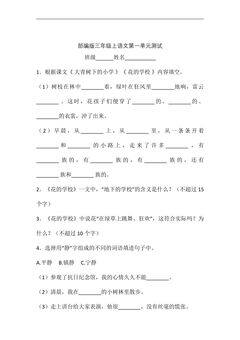 部编版三年级上语文第一单元测试
班级______姓名__________
1．根据课文《大青树下的小学》《花的学校》内容填空。
（1）树枝在林中________着，绿叶在狂风里________地响，雷云
________，这时，花孩子们便穿了________的、________的、
________的衣裳，冲了出来。
（2）早晨，从________上，从________里，从一条条开着
________和________的小路上，走来了许多________，有
________族的，有________族的，有________族的，还有
________族和________族的。
2．《花的学校》一文中，“地下的学校”的含义是什么？（不超过 15
个字）
3．《花的学校》中说花“在绿草上跳舞、狂欢”，这符合实际吗？为
什么？（不超过 10 个字）
4．选择用“静”字组成的不同的词语填进句子中。
A.平静 B.镇静 C.宁静
（1）参观了抗日纪念馆，我的心情久久不能________。
（2）清晨，我在________的小树林里散步。
（3）走上讲台给大家表演，他很________，没有丝毫的慌张。